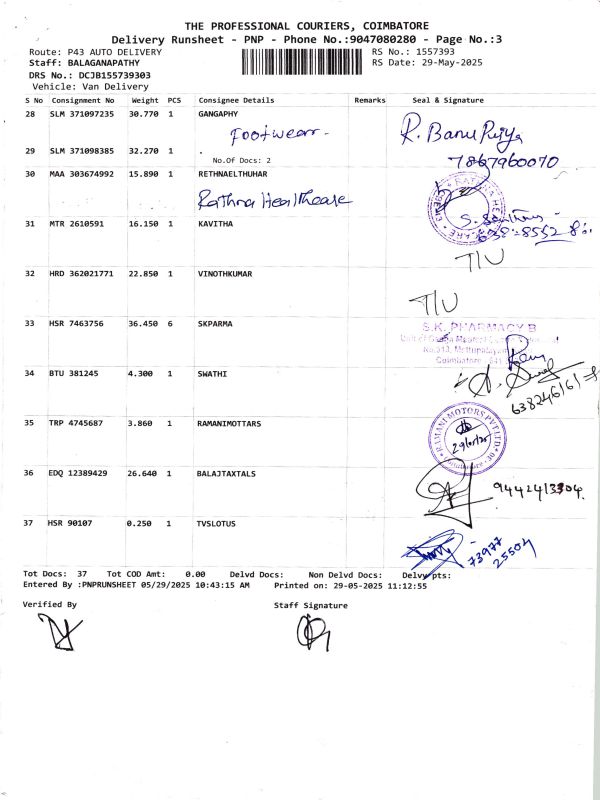 THE PROFESSIONAL COURIERS, COIMBATORE
Delivery Runsheet - PNP - Phone No.:9047080280 - Page No.:3
Route: P43 AUTO DELIVERY RS No.: 1557393
Staff: BALAGANAPATHY RS Date: 29-May-2025
DRS No.: DCJB155739303
Vehicle: Van Delivery
S No Consignment No Weight PCS Consignee Details Remarks Seal & Signature
28 SLM 371097235 30.770 1 GANGAPHY
Footwear- R. Banu Priya
29 SLM 371098385 32.270 1 .
No.Of Docs: 2 7867960070
30 MAA 303674992 15.890 1 RETHNAELTHUHAR
Rathna Healthcare
31 MTR 2610591 16.150 1 KAVITHA
T/U
32 HRD 362021771 22.850 1 VINOTHKUMAR
T/U
33 HSR 7463756 36.450 6 SKPARMA
S.K. PHARMACY B
Coimbatore
34 BTU 381245 4.300 1 SWATHI
35 TRP 4745687 3.860 1 RAMANIMOTTARS
RAMANI MOTORS PVT LTD
29/05/25
36 EDQ 12389429 26.640 1 BALAJTAXTALS
9442413304
37 HSR 90107 0.250 1 TVSLOTUS
73977
25504
Tot Docs: 37 Tot COD Amt: 0.00 Delvd Docs: Non Delvd Docs: Delvy pts:
Entered By :PNPRUNSHEET 05/29/2025 10:43:15 AM Printed on: 29-05-2025 11:12:55
Verified By Staff Signature